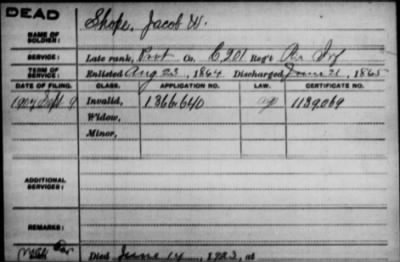 DEAD
NAME OF SOLDIER: Shope, Jacob W.
SERVICE: Late rank, Pvt Co. C, 201 Reg't Pa Inf
TERM OF SERVICE: Enlisted Aug 23, 1864 Discharged June 21, 1865
DATE OF FILING. CLASS. APPLICATION NO. LAW. CERTIFICATE NO.
1907 Sept 9 Invalid, 1366.640 1139.069
Widow,
Minor,
ADDITIONAL SERVICES:
REMARKS:
Died June 14, 1923, at